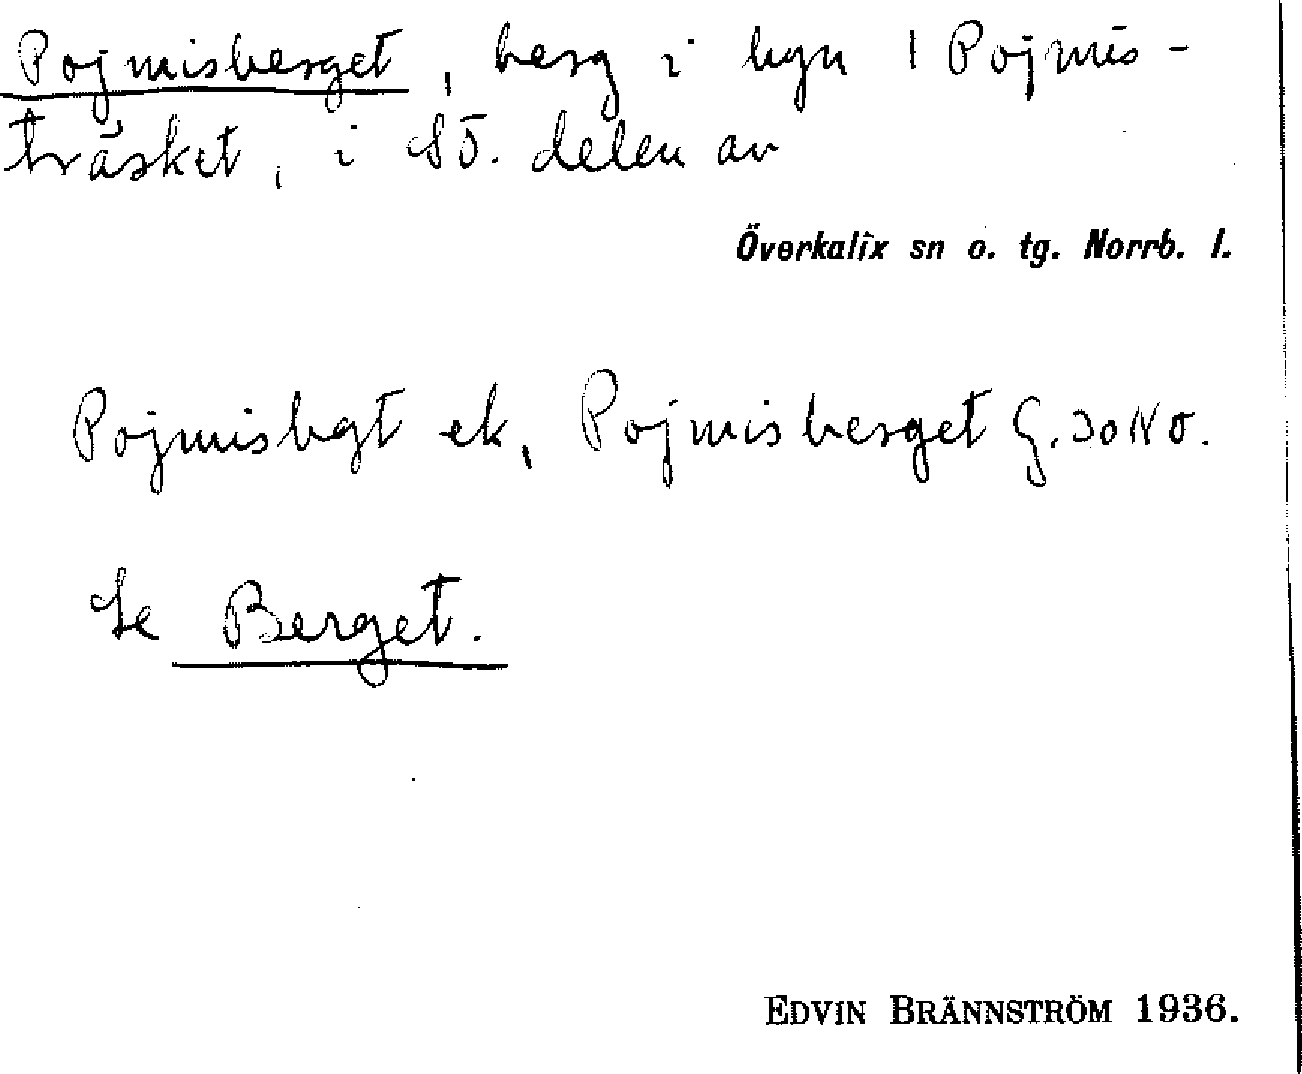 Pojmisberget, berg i byn 1 Pojmis-
träsket, i SÖ. delen av
Överkalix sn o. tg. Norrb. l.
Pojmisbgt ek, Pojmisberget G. 30 NO.
Se Berget.
EDVIN BRÄNNSTRÖM 1936.